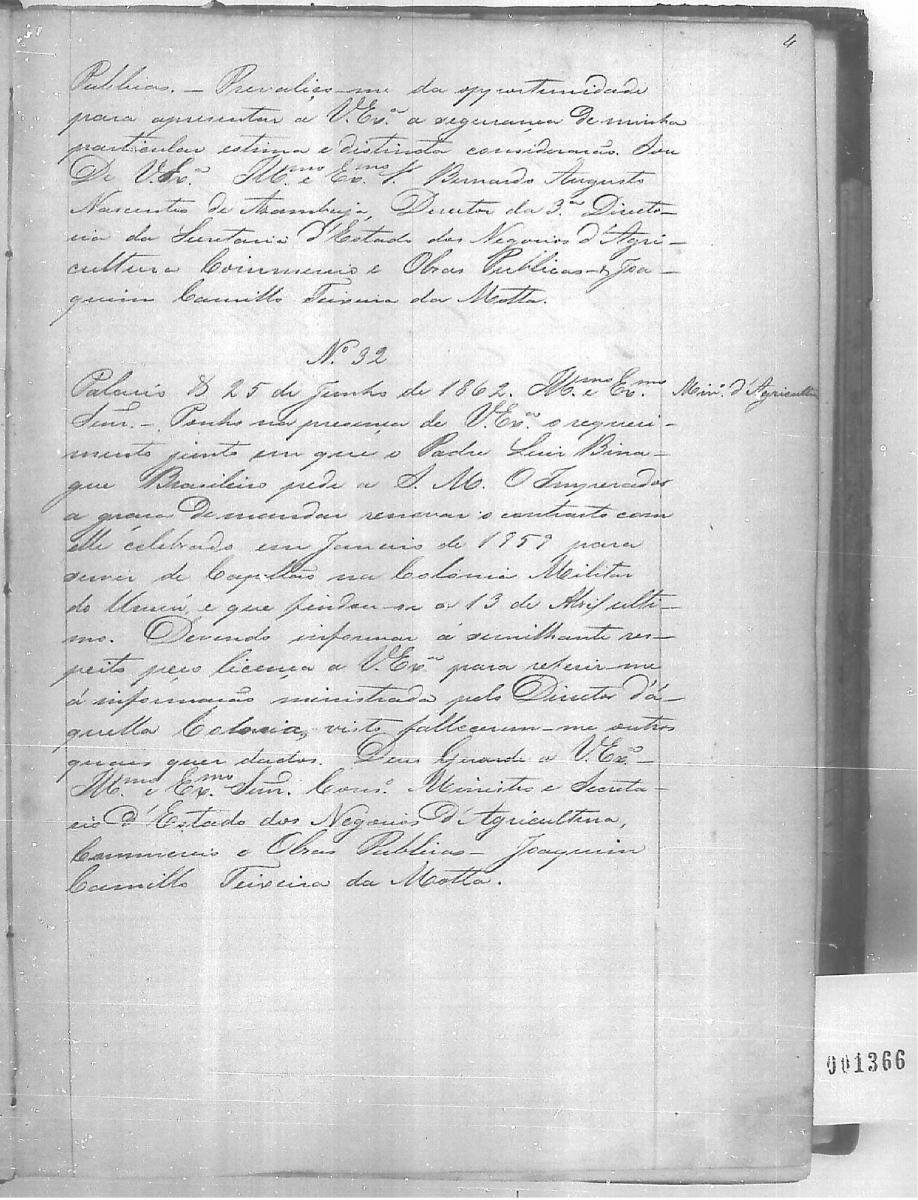 4
Publicas. — Prevaleço-me da opportunidade
para apresentar a V.Exª a segurança de minha
particular estima e distincta consideração. Sou
De V.Exª Illmo e Exmo S. Bernardo Augusto
Nascentes de Azambuja, Director da 3ª Directo-
ria da Secretaria d'Estado dos Negocios d'Agri-
cultura Commercio e Obras Publicas — Joa-
quim Camillo Teixeira da Motta.
Nº 32
Palacio 25 de Junho de 1862. Illmo e Exmo
Minº. d'Agricultura
Senr. — Ponho na presença de V.Exª o requeri-
mento junto em que o Padre Luis Bina-
que Brasileiro pede a S. M. O Imperador
a graça de mandar renovar o contracto com
elle celebrado em Janeiro de 1859 para
servir de Capellão na Colonia Militar
do Urucú, e que findou-se a 13 de Abril ulti-
mo. Devendo informar á similhante res-
peito peço licença a V.Exª para referir-me
á informação ministrada pelo Director d'a-
quella Colonia, visto fallecerem-me outros
quaes quer dados. Deus Guarde a V.Exª —
Illmo e Exmo Senr. Consº. Ministro e Secreta-
rio d'Estado dos Negocios d'Agricultura,
Commercio e Obras Publicas — Joaquim
Camillo Teixeira da Motta.
001366